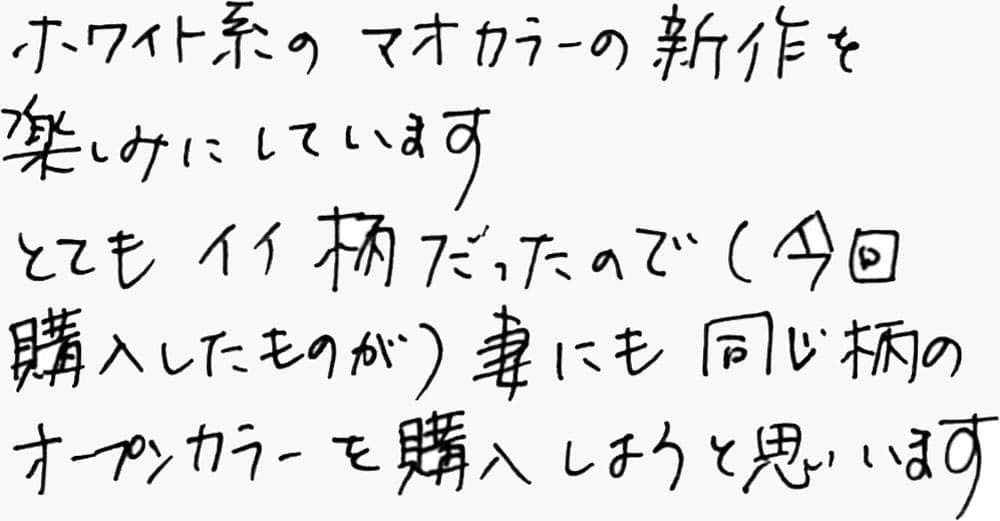 ホワイト系の マオカラーの新作を
楽しみにしています
とても イイ 柄だったので(今回
購入したものが)妻にも同じ柄の
オープンカラーを購入しようと思います